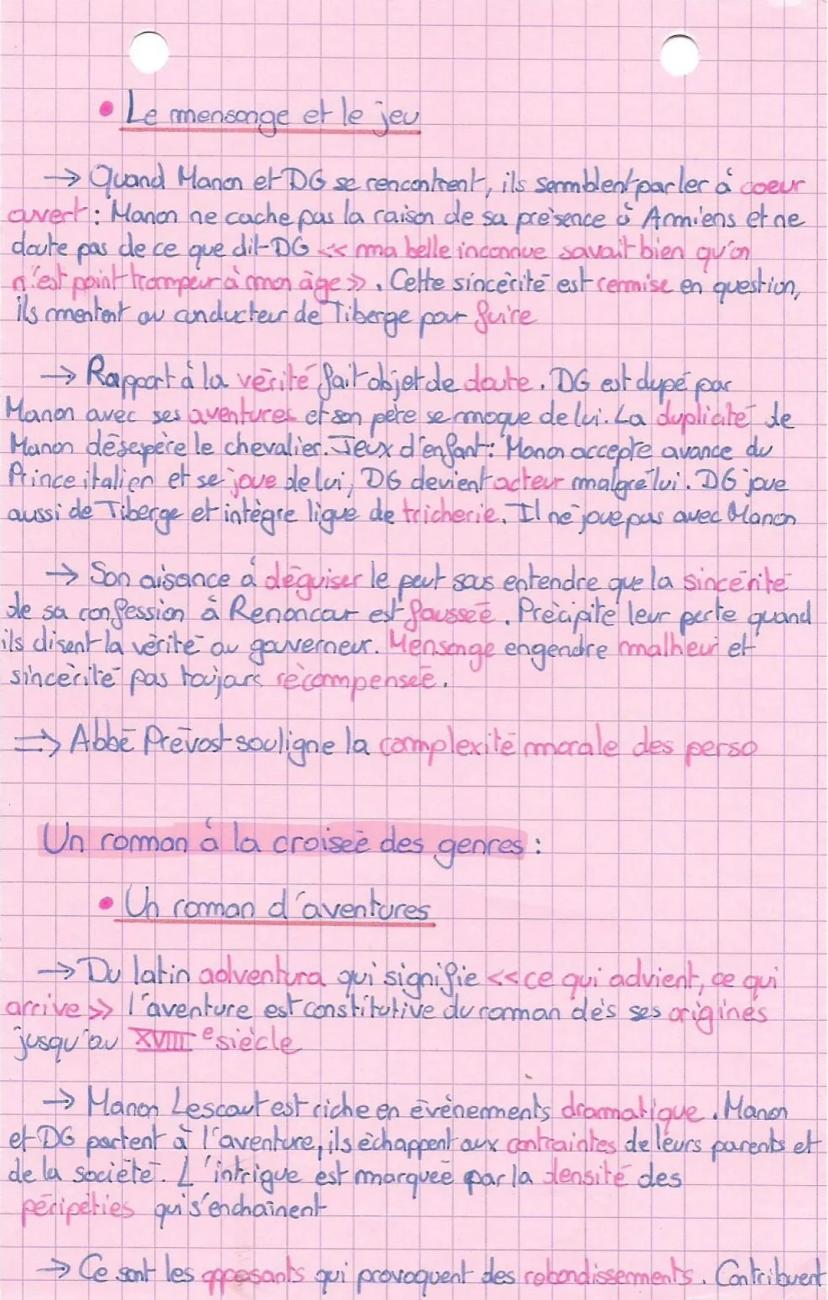 • Le mensonge et le jeu
→ Quand Manon et DG se rencontrent, ils semmblent parler à coeur
ouvert : Manon ne cache pas la raison de sa présence à Amiens et ne
doute pas de ce que dit DG << ma belle inconnue savait bien qu'on
n'est point trompeur à mon âge >>. Cette sincérité est remise en question,
ils mentent au conducteur de Tiberge pour fuire
→ Rapport à la vérité fait objet de doute. DG est dupé par
Manon avec ses aventures et son père se moque de lui. La duplicité de
Manon désespère le chevalier. Jeux d'enfant : Manon accepte avance du
Prince italien et se joue de lui, DG devient acteur malgré lui. DG joue
aussi de Tiberge et intègre ligue de tricherie. Il ne joue pas avec Manon
→ Son aisance à déguiser le peut sous entendre que la sincérité
de sa confession à Renoncour est faussée. Précipite leur perte quand
ils disent la vérité au gouverneur. Mensonge engendre malheur et
sincérité pas toujours récompensée.
⇒ Abbé Prévost souligne la complexité morale des perso
Un roman à la croisée des genres :
• Un roman d'aventures
→ Du latin adventura qui signifie << ce qui advient, ce qui
arrive >> l'aventure est constitutive du roman dès ses origines
jusqu'au XVIII e siècle
→ Manon Lescaut est riche en évènements dramatique. Manon
et DG partent à l'aventure, ils échappent aux contraintes de leurs parents et
de la société. L'intrigue est marquée par la densité des
péripéties qui s'enchaînent
→ Ce sont les opposants qui provoquent des rebondissements. Contribuent